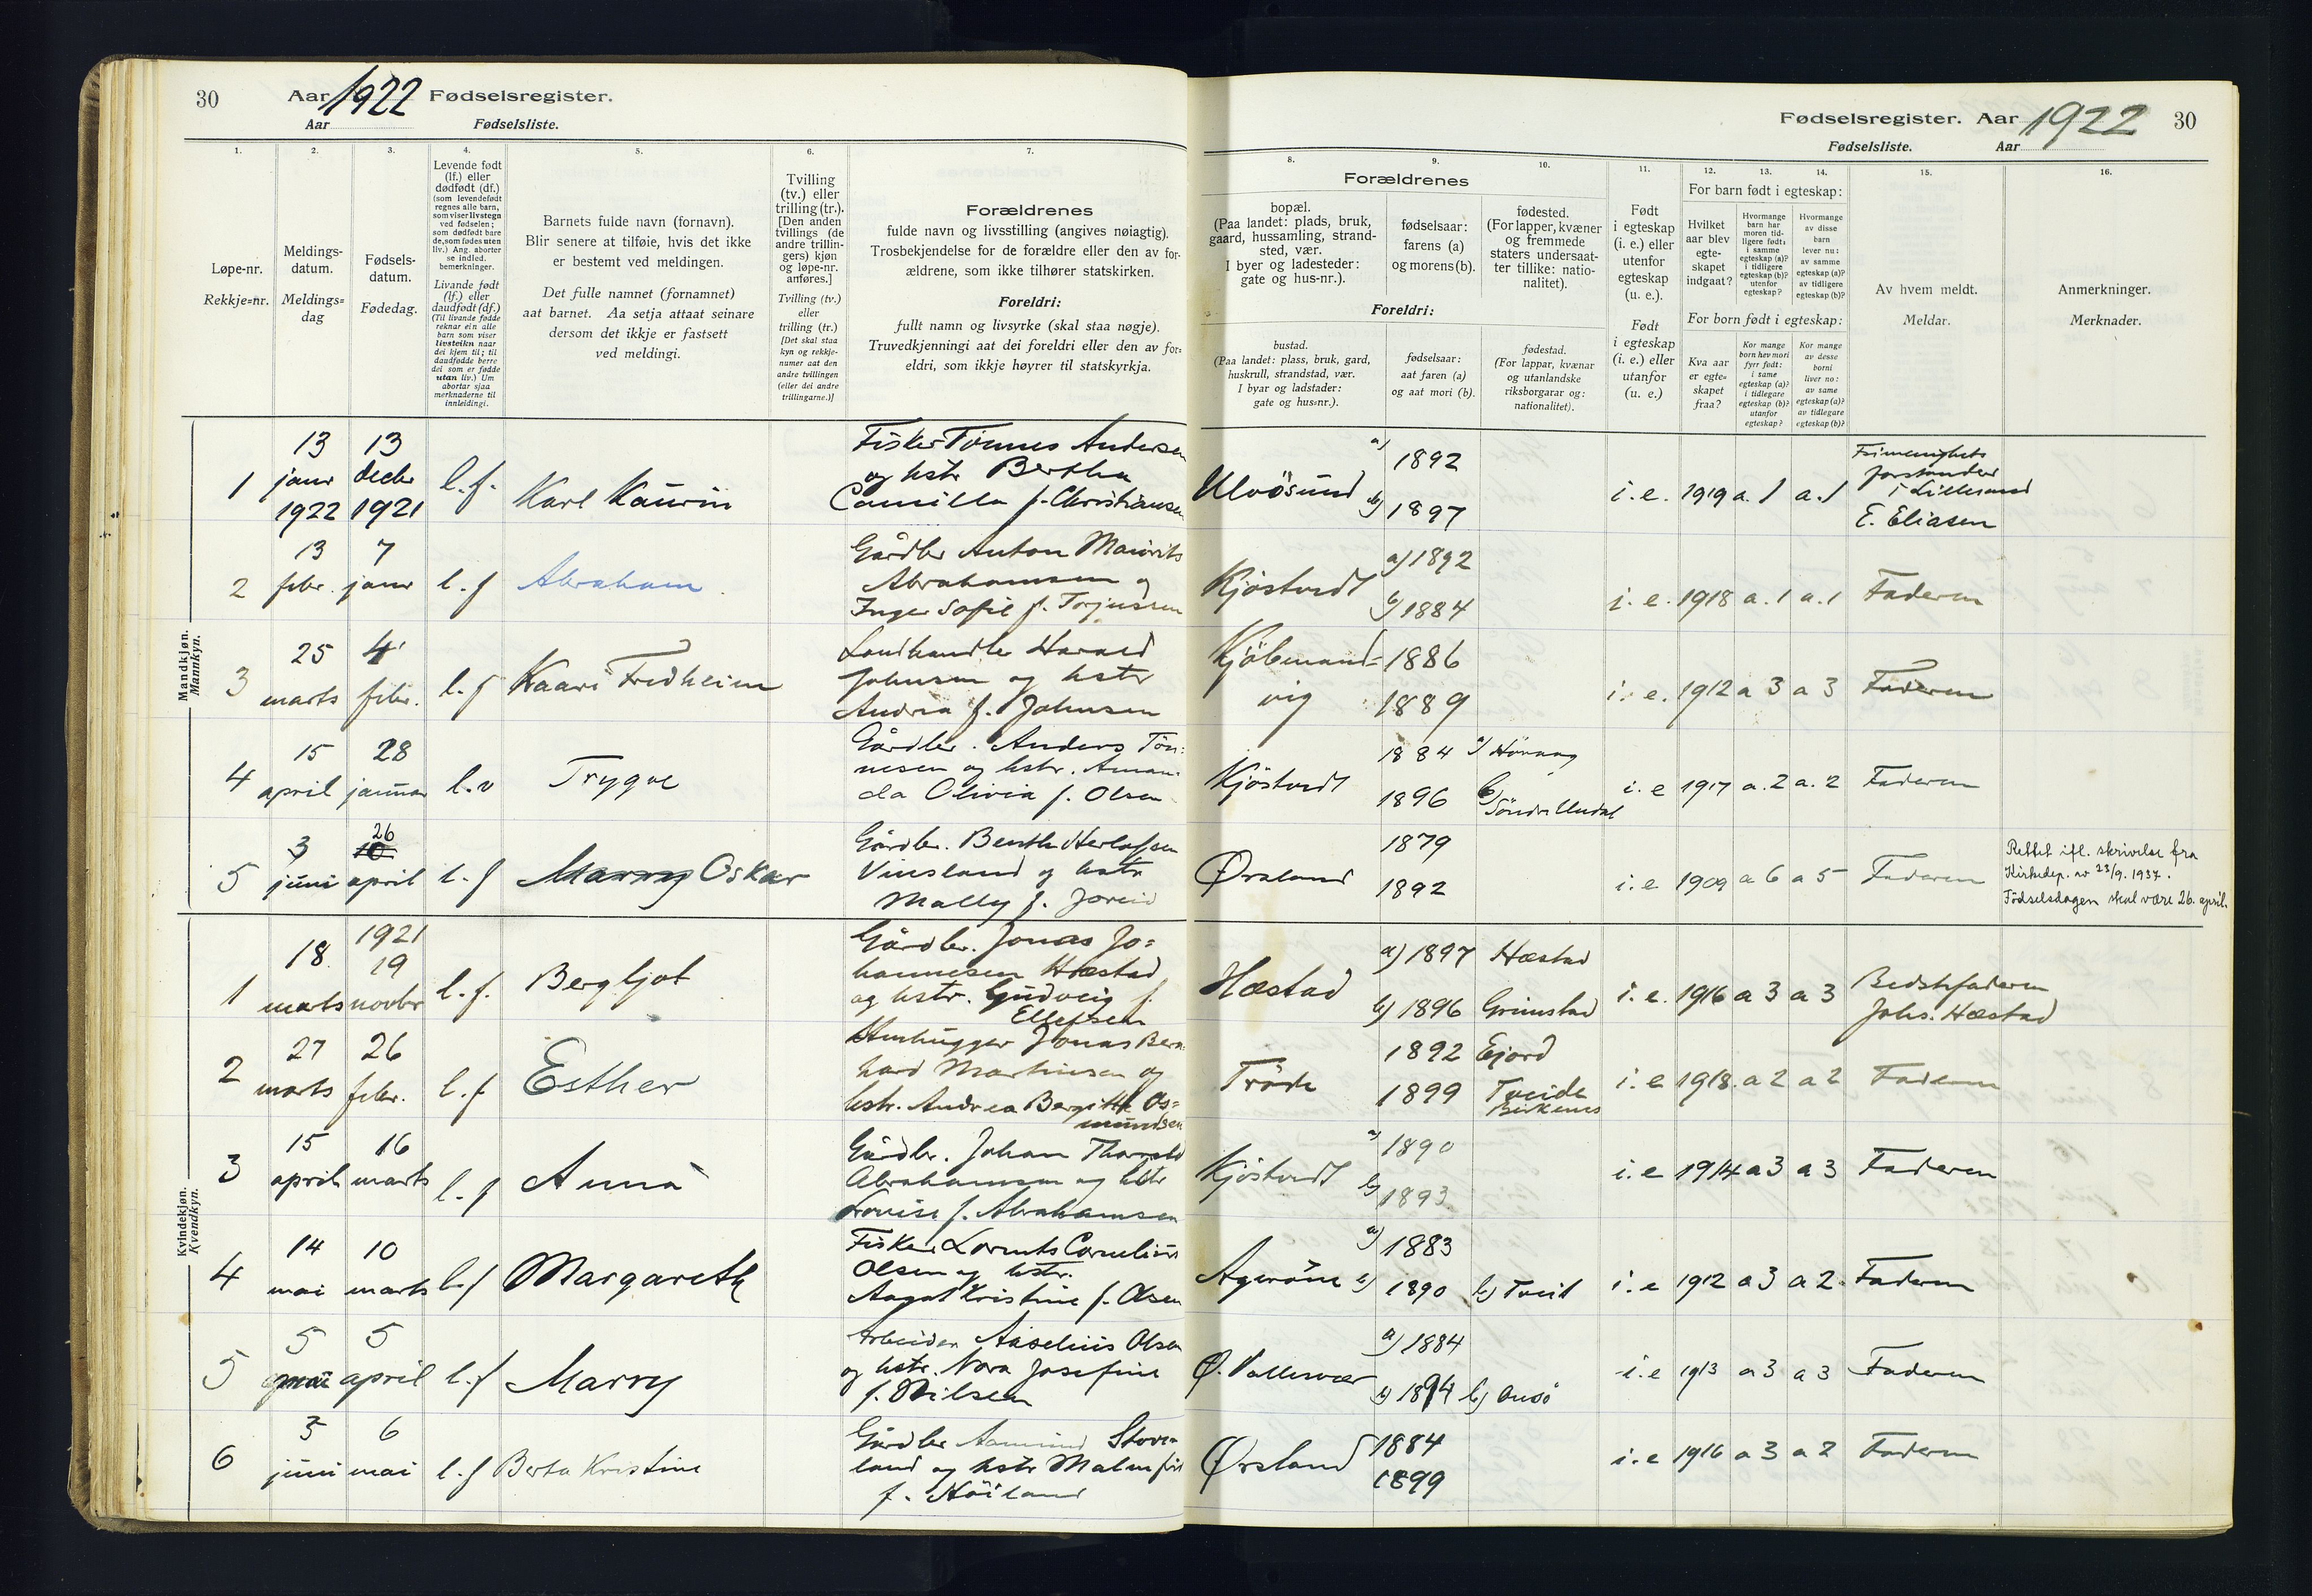 30
Aar 1922 Fødselsregister.
Aar Fødselsliste.
1.
2.
3.
4.
5.
6.
7.
Løpe-nr.
Rekkje=nr.
Meldings-
datum.
Meldings=
dag
Fødsels-
datum.
Fødedag.
Levende født
(lf.) eller
dødfødt (df.)
(som levendefødt
regnes alle barn,
som viser livstegn
ved fødselen;
som dødfødt bare
de, som fødes uten
liv.) Ang. aborter
se indled.
bemerkninger.
Livande født
(lf.) eller
daudfødt (df.)
(Til livande fødde
reknar ein alle
barn som viser
livsteikn naar
dei kjem til; til
daudfødde berre
dei som er fødde
utan liv.) Um
abortar sjaa
merknaderne til
innleidingi.
Barnets fulde navn (fornavn).
Blir senere at tilføie, hvis det ikke
er bestemt ved meldingen.
Det fulle namnet (fornamnet)
aat barnet. Aa setja attaat seinare
dersom det ikkje er fastsett
ved meldingi.
Tvilling
(tv.) eller
trilling (tr.).
[Den anden
tvillings (de
andre trillin-
gers) kjøn
og løpe-nr.
anføres.]
Tvilling (tv.)
eller
trilling (tr.)
[Det skal staa
kyn og rekkje-
numer aat den
andre tvillingen
(eller dei andre
trillingarne.)]
Forældrenes
fulde navn og livsstilling (angives nøiagtig).
Trosbekjendelse for de forældre eller den av for-
ældrene, som ikke tilhører statskirken.
Foreldri:
fullt namn og livsyrke (skal staa nøgje).
Truvedkjenningi aat dei foreldri eller den av for=
eldri, som ikkje høyrer til statskyrkja.
Fødselsregister. Aar 1922 30
Fødselsliste. Aar
8.
9.
10.
11.
12.
13.
14.
15.
16.
Forældrenes
bopæl.
(Paa landet: plads, bruk,
gaard, hussamling, strand-
sted, vær.
I byer og ladesteder:
gate og hus-nr.).
fødselsaar:
farens (a)
og morens (b).
fødested.
(For lapper, kvæner
og fremmede
staters undersaat-
ter tillike: natio-
nalitet).
Foreldri:
bustad.
(Paa landet: plass, bruk, gard,
huskrull, strandstad, vær.
I byar og ladstader:
gate og hus=nr.).
fødselsaar:
aat faren (a)
og aat mori (b).
fødestad.
(For lappar, kvænar
og utanlandske
riksborgarar og:
nationalitet).
Født
i egteskap
(i. e.) eller
utenfor
egteskap
(u. e.).
Født
i egteskap
(i. e.) eller
utanfor
egteskap
(u. e.)
For barn født i egteskap:
Hvilket
aar blev
egte-
skapet
indgaat?
Hvormange
barn har
moren tid-
ligere født:
i samme
egteskap (a)?
i tidligere
egteskap (b)?
utenfor
egteskap?
Hvormange
av disse
barn
lever nu:
av samme
egteskap (a)?
av tidligere
egteskap (b)?
For born født i egteskap:
Kva aar
er egte=
skapet
fraa?
Kor mange
born hev mori
fyrr født:
i same
egteskap (a)?
i tidlegare
egteskap (b)?
utanfor
egteskap?
Kor mange
av desse
borni
liver no:
av same
egteskap (a)?
av tidlegare
egteskap (b)?
Av hvem meldt.
Meldar.
Anmerkninger.
Merknader.
Mandkjøn.
Mannkyn.
1
13 janr 1922
13 decbr 1921
l. f.
Karl Kaurin
Fisker Tönnes Andersen
og hstr Bertha
Camilla f. Christiansen
Ulvösund
a) 1892
b) 1897
i. e. 1919 a. 1 a. 1
Frimenighets
forstander
i Lillesand
E. Eliasen
2
13 febr.
7 janr
l. f
Abraham
Gårdbr Anton Mauritz
Abrahamsen og
Inger Sofie f. Torjussen
Kjöstvedt
a) 1892
b) 1884
i. e. 1918 a. 1 a. 1 Faderen
3
25 marts
4 febr.
l. f
Kaare Fredheim
Landhandler Harald
Johnsen og hstr
Andrea f. Johnsen
Kjöbmands=
vig
1886
1889
i. e. 1912 a 3 a 3 Faderen
4
15 april
28 januar
l. v
Trygve
Gårdbr. Anders Tön=
nesen og hstr. Aman=
da Olivia f. Olsen
Kjöstvedt
1884 a) Hövaag
1896 b) Söndr. Undal
i. e 1917 a. 2 a. 2 Faderen
5
3 juni
26 10 april
l. f
Marry Oskar
Gårdbr. Benth Herlofsen
Vinsland og hstr
Mally f. Joreid
Ørsland
1879
1892
i. e 1909 a 6 a 5 Faderen
Rettet ifl. skrivelse fra
Kirkedep. av 23/9. 1937.
Fødselsdagen skal være 26. april.
Kvindekjøn.
Kvendkyn.
1
18 marts
1921 19 novbr
l. f.
Bergljot
Gårdbr. Jonas Jo=
hannesen Hæstad
og hstr. Gudveig f.
Ellefsen
Hæstad
a) 1897 Hæstad
b) 1896 Grimstad
i. e. 1916 a 3 a 3
Bedstefaderen
Johs. Hæstad
2
27 marts
26 febr.
l. f.
Esther
Stenhugger Jonas Bern=
hard Martinsen og
hstr. Andrea Bergitte As=
mundsen
Tröde
1892 Ejord
1899 Tveide
Birkenes
i. e 1918. a 2 a 2 Faderen
3
15 april
16 marts
l. f
Anna
Gårdbr. Johan Tharald
Abrahamsen og hstr
Lovise f. Abrahamsen
Kjöstvedt
a) 1890
b) 1893
i. e 1914 a 3 a 3 Faderen
4
14 mai
10 marts
l. f
Margareth
Fisker Lorents Cornelius
Olsen og hstr.
Aagot Kristine f. Olsen
Ageröne
a) 1883
b) 1890 b) Tveit
i. e 1912 a 3 a 2. Faderen
5
5 mai
5 april
l. f
Marry
Arbeider Asselius Olsen
og hstr. Nora Josefine
f. Nilsen
Ø. Vallesvær
a) 1884
b) 1894 b) Ousö
i. e 1913 a 3 a 3 Faderen
6
3 juni
6 mai
l. f
Berta Kristine
Gårdbr Aamund Stove=
land og hstr Malmfrid
f. Höiland
Ørsland
1884
1899
i. e 1916 a 3 a 2 Faderen